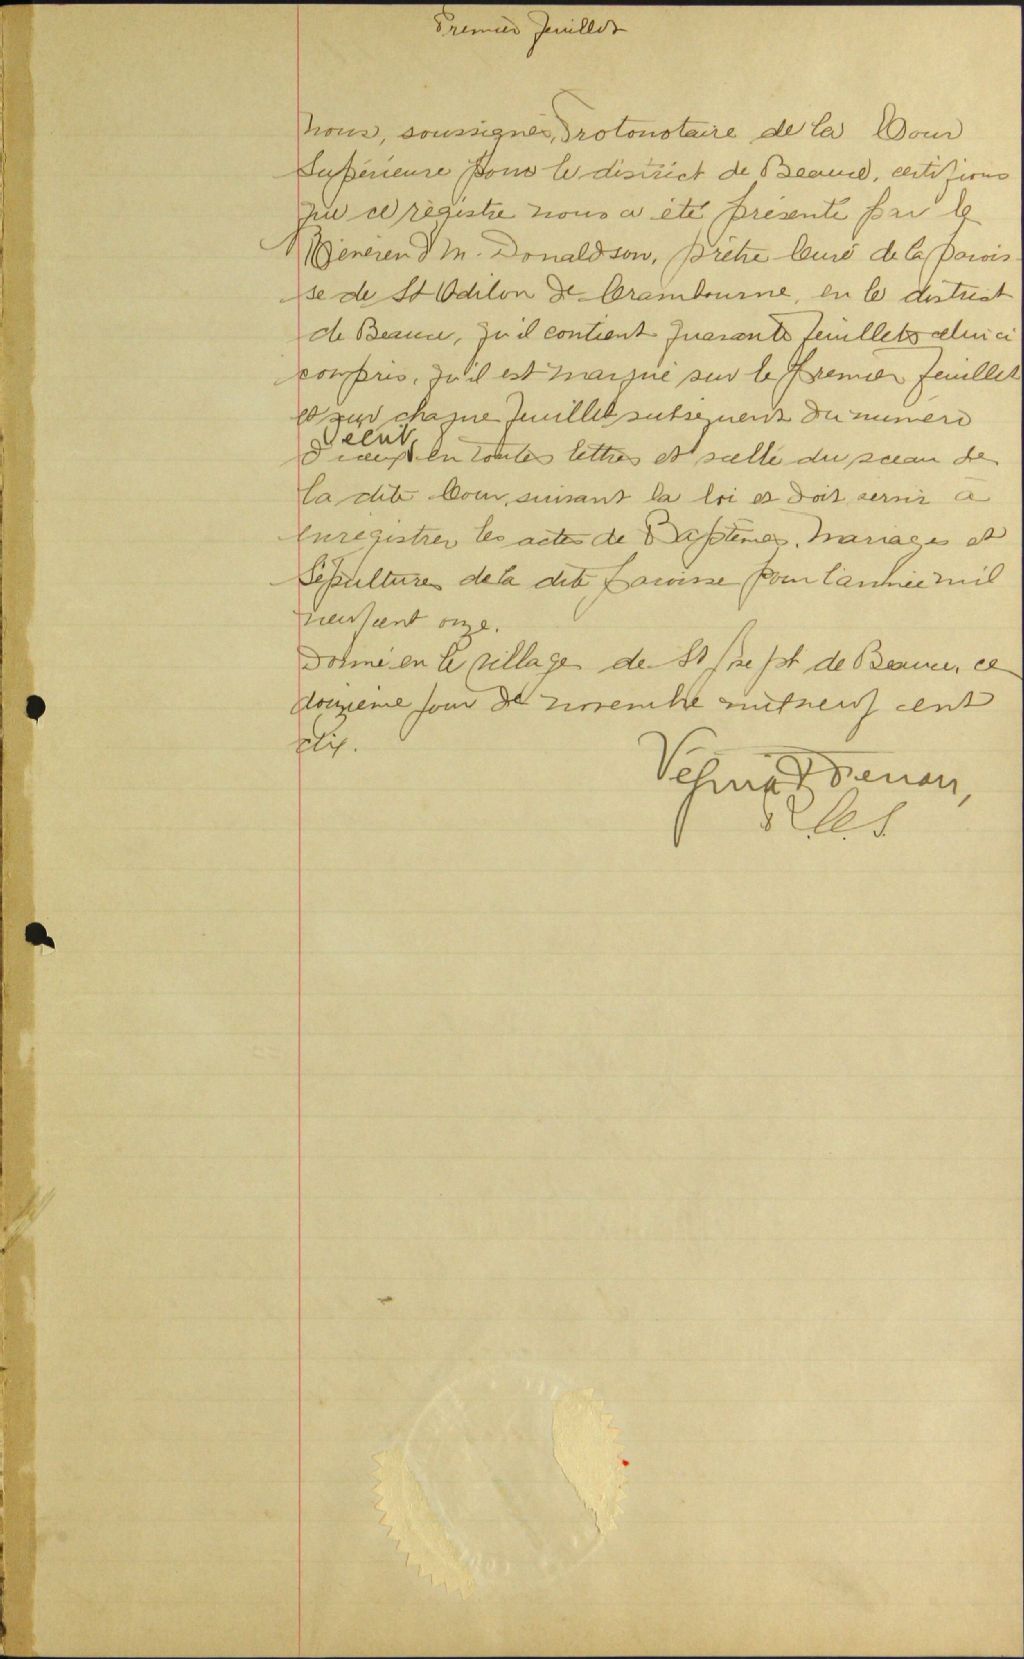 Premier feuillet
Nous, soussignés, Protonotaire de la Cour
Supérieure pour le district de Beauce, certifions
que ce régistre nous a été présenté par le
Révérend M. Donaldson, prêtre Curé de la parois-
se de St Odilon de Cranbourne, en le district
de Beauce, qu'il contient quarante feuillets celui ci
compris, qu'il est marqué sur le premier feuillet
et sur chaque feuillet subséquent du numéro
écrit
d'iceux en toutes lettres et scellé du sceau de
la dite Cour, suivant la loi et doit servir à
enrégistrer les actes de Baptêmes, Mariages et
Sépultures de la dite paroisse pour l'année mil
neuf cent onze.
Donné en le village de St Joseph de Beauce, ce
douzième jour de novembre mil neuf cent
dix.
Vézina &
P. C. S.